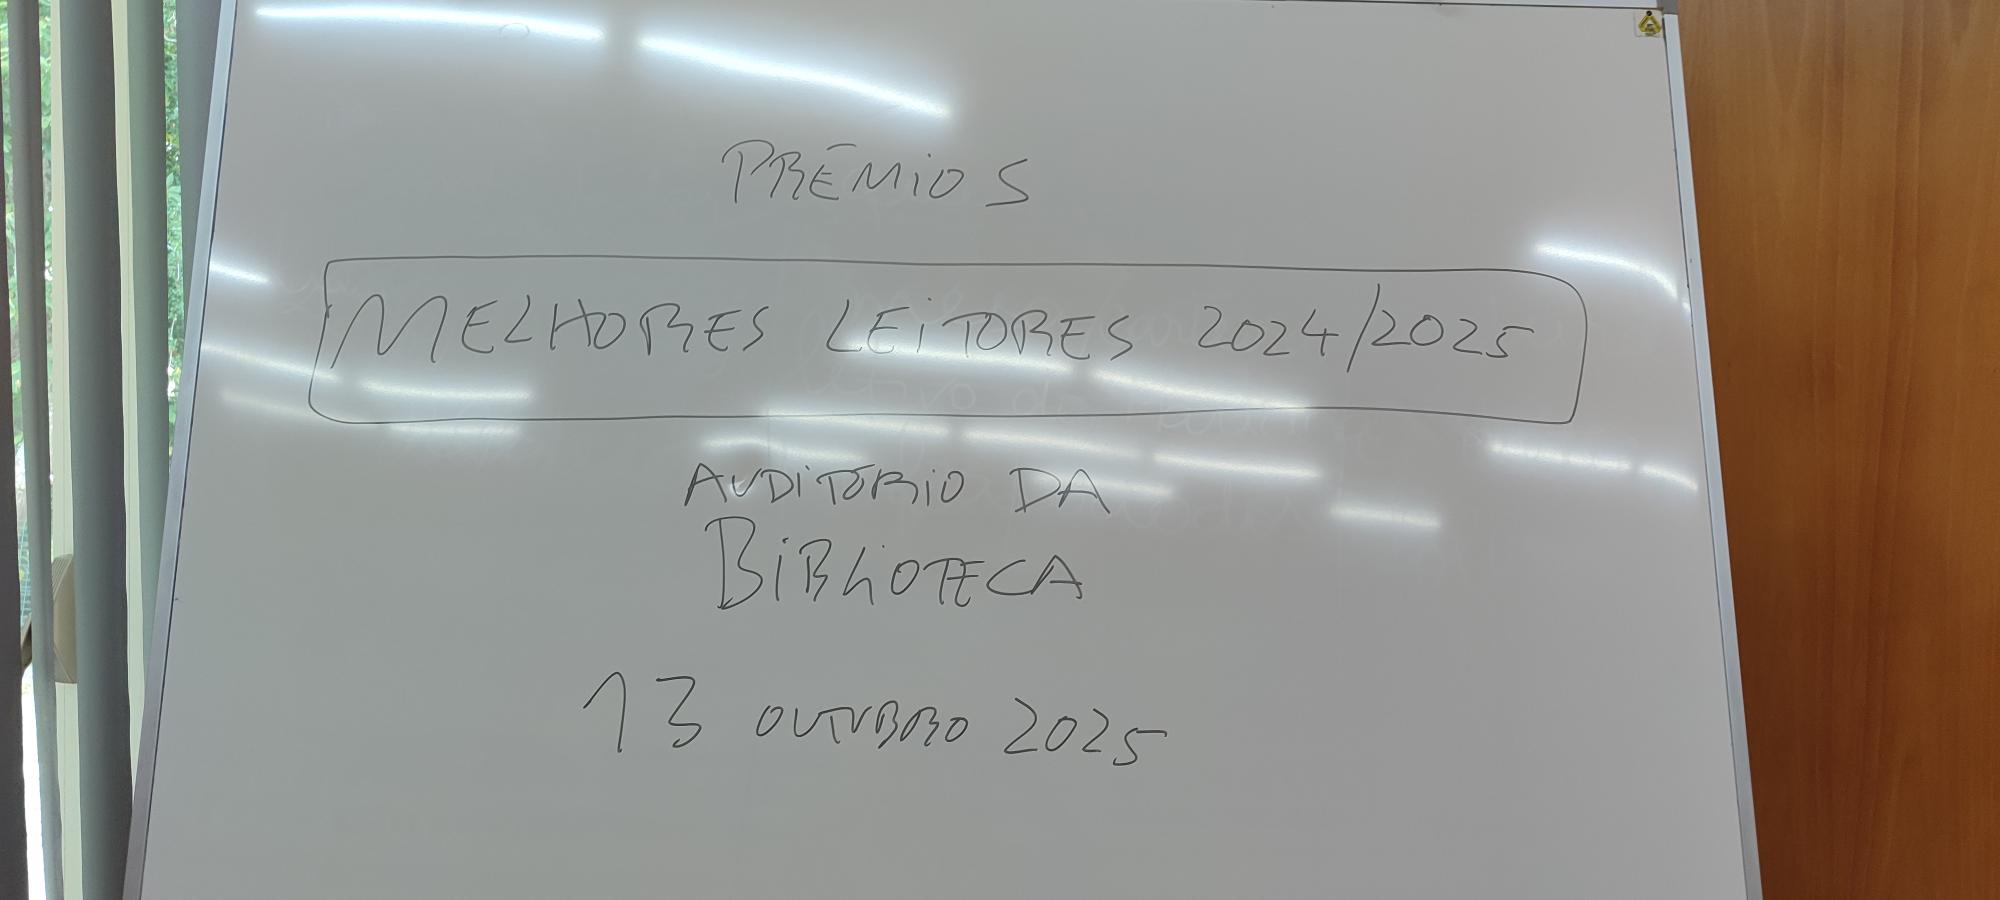 PRÉMIOS
MELHORES LEiTORES 2024/2025
AUDiTÓRiO DA
BiBLiOTECA
13 OUTUBRO 2025